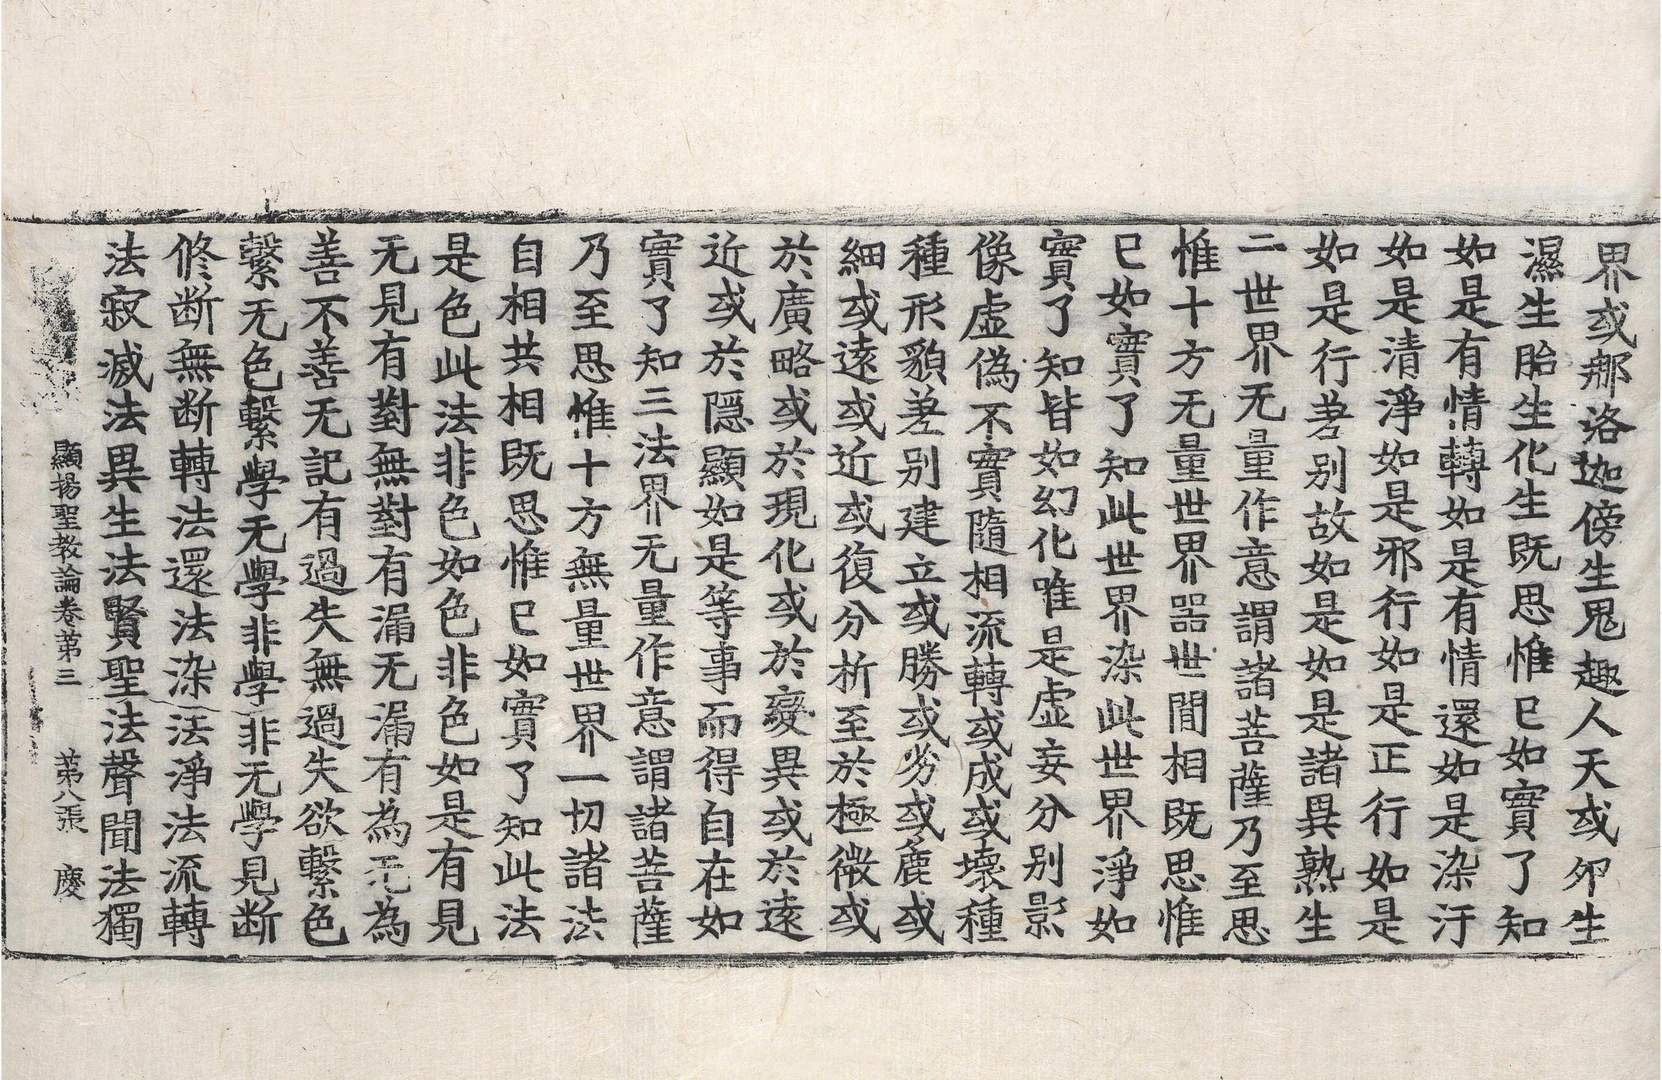 界或那洛迦傍生鬼趣人天或夘生
濕生胎生化生既思惟已如實了知
如是有情轉如是有情還如是染汙
如是清淨如是邪行如是正行如是
如是行差别故如是如是諸異熟生
二世界无量作意謂諸菩薩乃至思
惟十方无量世界器世間相既思惟
已如實了知此世界染此世界淨如
實了知皆如幻化唯是虚妄分别影
像虚偽不實隨相流轉或成或壞種
種形貌差别建立或勝或劣或麁或
細或遠或近或復分析至於極微或
於廣略或於現化或於變異或於遠
近或於隠顯如是等事而得自在如
實了知三法界无量作意謂諸菩薩
乃至思惟十方無量世界一切諸法
自相共相既思惟已如實了知此法
是色此法非色如色非色如是有見
无見有對無對有漏无漏有為无為
善不善无記有過失無過失欲繫色
繫无色繫學无學非學非无學見断
修断無断轉法還法染法淨法流轉
法寂滅法異生法賢聖法聲聞法獨
顯揚聖教論卷第三　第八張　慶